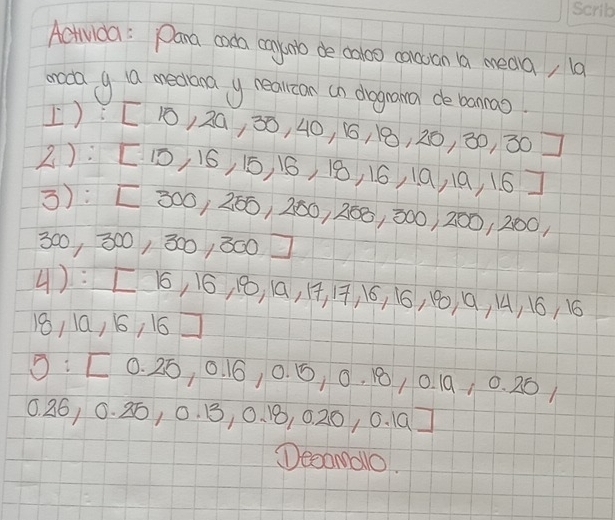 Scrib
Activida: Para cada conjunto de datos calculan la media, la
moda y la mediana y realizan un diagrama de barras.
1): [ 15, 20, 30, 40, 16, 18, 20, 30, 30 ]
2): [ 15, 16, 15, 16, 18, 16, 19, 19, 16 ]
3): [ 300, 200, 300, 200,
300, 300, 300, 300 ]
4): [ 16, 16, 18, 19, 17, 17, 16, 16, 18, 19, 14, 16, 16
18, 19, 16, 16 ]
5: [ 0.25, 0.16, 0.15, 0.18, 0.19, 0.25,
0.26, 0.25, 0.13, 0.18, 0.20, 0.19 ]
Desarrollo.